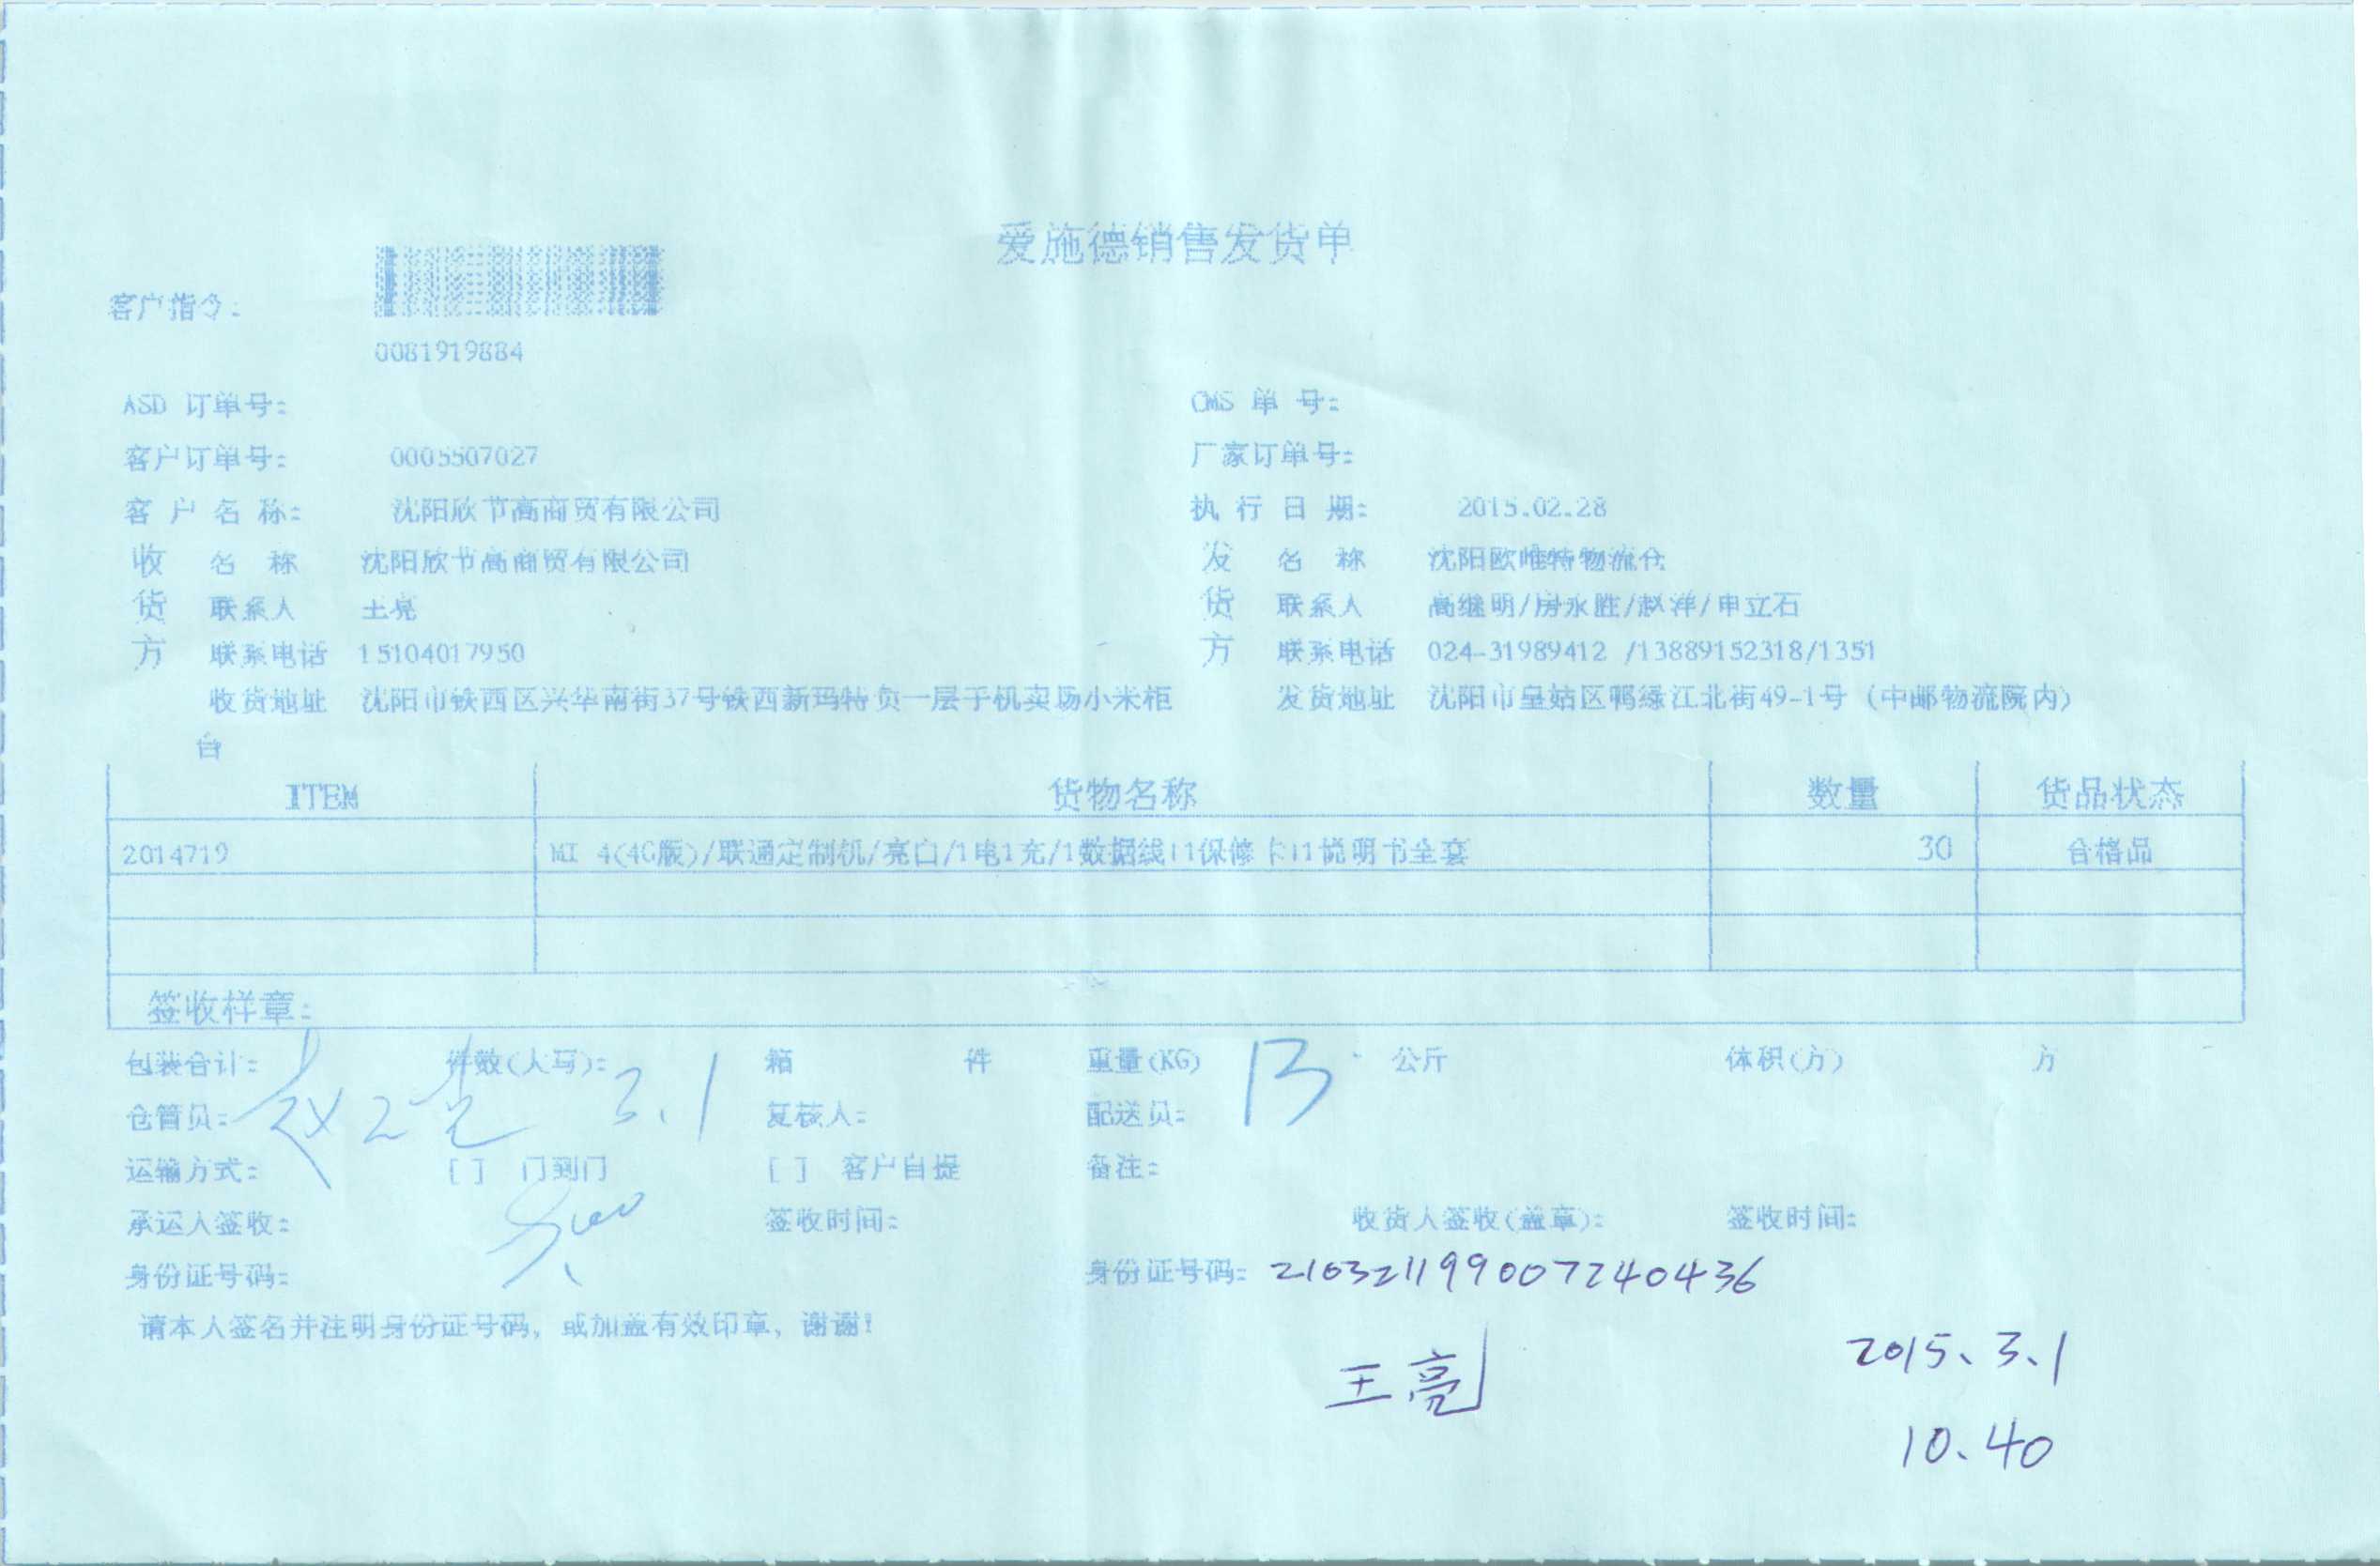 爱施德销售发货单
客户指令:
0081919884
ASD 订单号: CMS 单 号:
客户订单号: 0005507027 厂家订单号:
客 户 名 称: 沈阳欣节高商贸有限公司 执 行 日 期: 2015.02.28
收 名 称 沈阳欣节高商贸有限公司 发 名 称 沈阳欧唯特物流仓
货 联系人 王亮 货 联系人 高继明/房永胜/赵洋/申立石
方 联系电话 15104017950 方 联系电话 024-31989412 /13889152318/1351
收货地址 沈阳市铁西区兴华南街37号铁西新玛特负一层手机卖场小米柜 发货地址 沈阳市皇姑区鸭绿江北街49-1号 (中邮物流院内)
台
ITEM 货物名称 数量 货品状态
2014719 MI 4(4G版)/联通定制机/亮白/1电1充/1数据线|1保修卡|1说明书全套 30 合格品
签收样章:
包装合计: 件数(大写): 3.1 箱 件 重量(KG) 13 公斤 体积(方) 方
仓管员: 复核人: 配送员:
运输方式: [ ] 门到门 [ ] 客户自提 备注:
承运人签收: 签收时间: 收货人签收(盖章): 签收时间:
身份证号码: 身份证号码: 210321199007240436
请本人签名并注明身份证号码, 或加盖有效印章, 谢谢!
王亮 2015、3、1
10、40